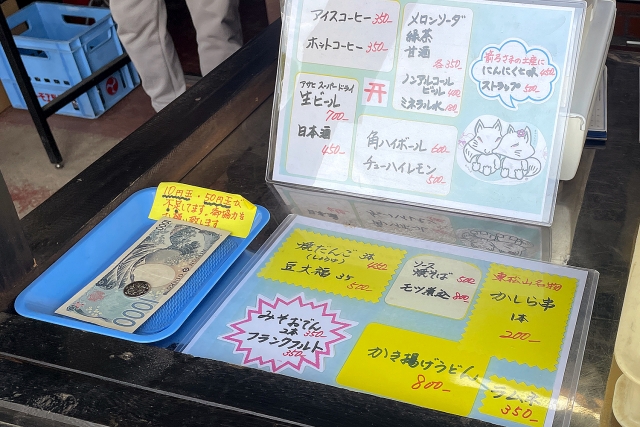 アイスコーヒー 350
ホットコーヒー 350
メロンソーダ
緑茶
甘酒
各350
ノンアルコール
ビール 400
ミネラル水 100
箭弓さまの土産に
にんにく七味 450
ストラップ 500
アサヒスーパードライ
生ビール
700
日本酒
450
角ハイボール 600
チューハイレモン
500
10円玉・50円玉が
不足してます。御協力を
お願い致します
1000
焼だんご 3本
(しょうゆ) 450
豆大福 3ケ
500
ソース
焼そば 500
モツ煮込 800
東松山名物
かしら串
1本
200
みそおでん
2本 350
フランクフルト
350
かき揚げうどん
800
ラムネ
350